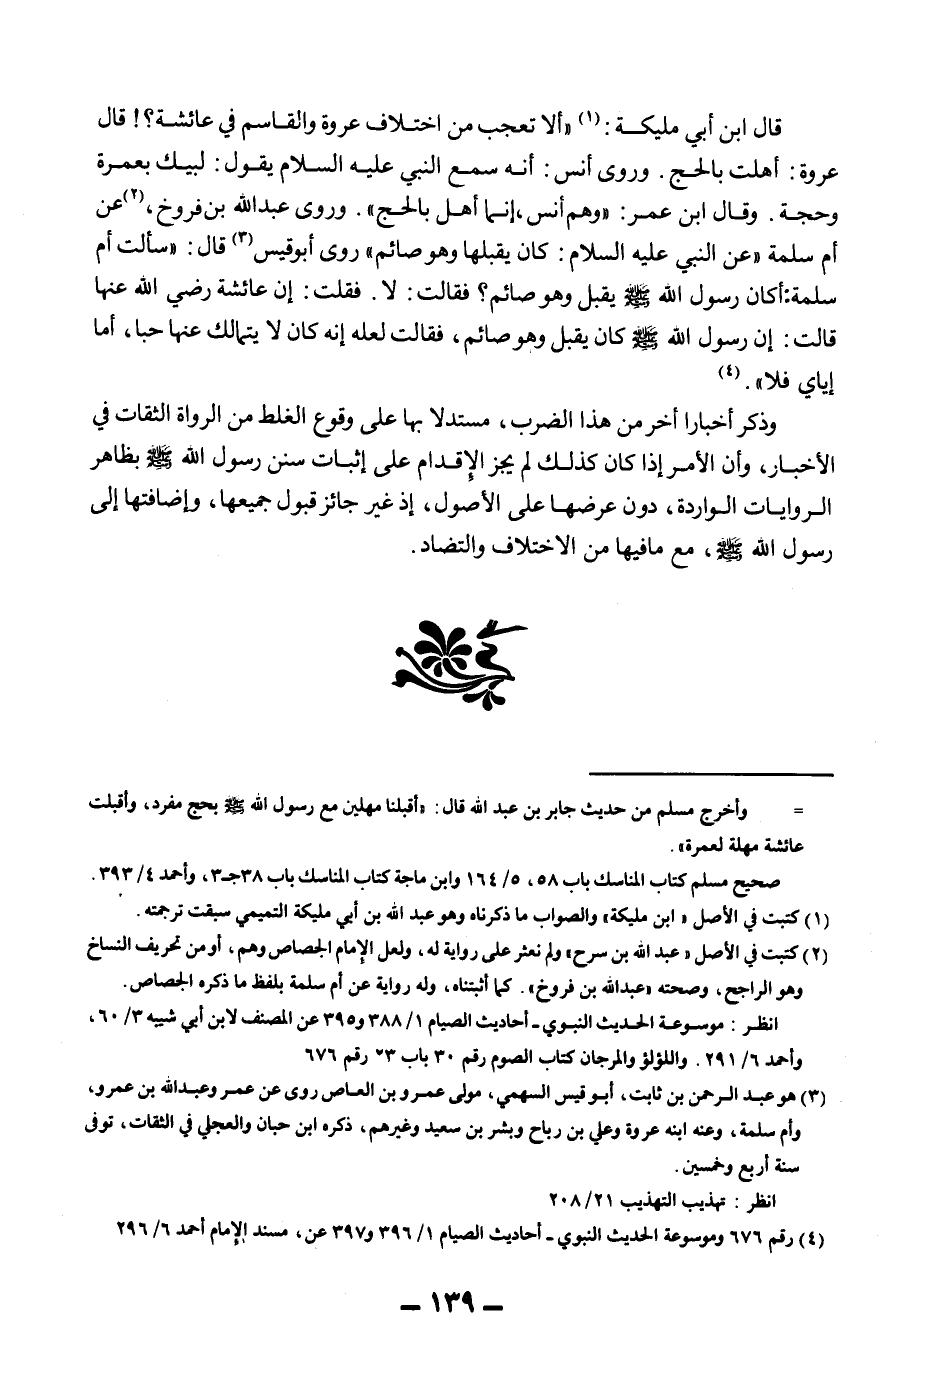 قال ابن أبي مليكـة :(١) «ألا تعجب من اختـلاف عروة والقـاسم في عائشـة؟! قال
عروة: أهلت بالحـج . وروى أنس: أنـه سمـع النبي عليـه السـلام يقـول: لبيـك بعمـرة
وحجـة . وقـال ابن عمـر: «وهم أنس ،إنـما أهـل بالحـج» . وروى عبدالله بن فروخ ،(٢)عن
أم سلمة «عن النبي عليه السلام: كان يقبلها وهو صائم» روى أبوقيس(٣) قال: «سألت أم
سلمة:أكان رسول الله ﷺ يقبل وهو صائم؟ فقالت: لا. فقلت: إن عائشة رضي الله عنها
قالت: إن رسول الله ﷺ كان يقبل وهو صائم، فقالت لعله إنه كان لا يتمالك عنها حبا، أما
إياي فلا» .(٤)
وذكر أخبارا أخر من هذا الضرب، مستدلا بها على وقوع الغلط من الرواة الثقات في
الأخبـار، وأن الأمـر إذا كان كذلـك لم يجز الإقـدام على إثبـات سنن رسول الله ﷺ بظاهر
الـروايـات الـواردة، دون عرضهـا على الأصـول، إذ غير جائز قبول جميعها، وإضافتها إلى
رسول الله ﷺ، مع مافيها من الاختلاف والتضاد.
= وأخرج مسلم من حديث جابر بن عبد الله قال: «أقبلنا مهلين مع رسول الله ﷺ بحج مفرد، وأقبلت
عائشة مهلة لعمرة» .
صحيح مسلم كتاب المناسك باب ٥٨، ٥/ ١٦٤ وابن ماجة كتاب المناسك باب ٣٨جـ٣، وأحمد ٤/ ٣٩٣ .
(١) كتبت في الأصل « ابن مليكة» والصواب ما ذكرناه وهو عبد الله بن أبي مليكة التميمي سبقت ترجمته .
(٢) كتبت في الأصل « عبد الله بن سرح» ولم نعثر على رواية له، ولعل الإمام الجصاص وهم، أو من تحريف النساخ
وهو الراجح، وصحته «عبدالله بن فروخ» . كما أثبتناه، وله رواية عن أم سلمة بلفظ ما ذكره الجصاص.
انظر : موسـوعـة الحـديث النبـوي ـ أحاديث الصيام ١/ ٣٨٨ و٣٩٥ عن المصنف لابن أبي شيبه ٣/ ٦٠،
وأحمد ٦/ ٢٩١ . واللؤلؤ والمرجان كتاب الصوم رقم ٣٠ باب ٢٣ رقم ٦٧٦
(٣) هو عبـد الـرحمن بن ثابت، أبـو قيس السهمي، مولى عمـرو بن العـاص روى عن عمـر وعبـدالله بن عمرو،
وأم سلمة، وعنه ابنه عروة وعلي بن رباح وبشر بن سعيد وغيرهم، ذكره ابن حبان والعجلي في الثقات، توفى
سنة أربع وخمسين .
انظر : تهذيب التهذيب ٢١/ ٢٠٨
(٤) رقم ٦٧٦ وموسوعة الحديث النبوي ـ أحاديث الصيام ١/ ٣٩٦ و٣٩٧ عن، مسند الإمام أحمد ٦/ ٢٩٦
ـ ١٣٩ ـ